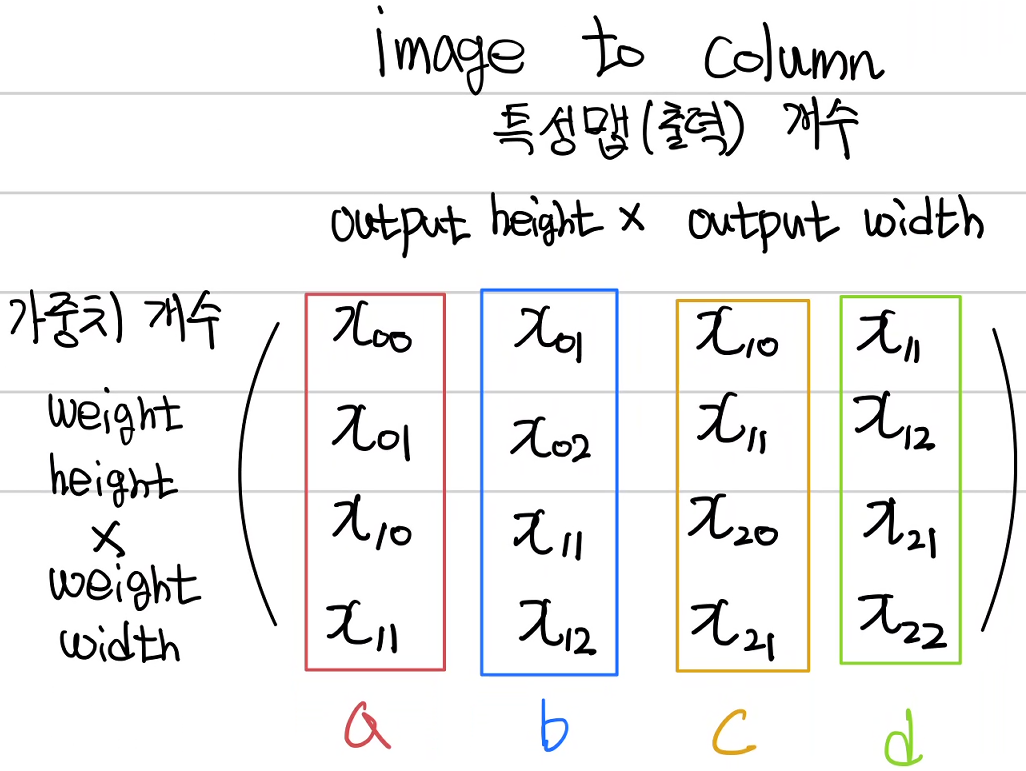 image to column
특성맵(출력) 개수
output height × output width
가중치 개수
weight
height
×
weight
width
x₀₀ x₀₁ x₁₀ x₁₁
x₀₁ x₀₂ x₁₁ x₁₂
x₁₀ x₁₁ x₂₀ x₂₁
x₁₁ x₁₂ x₂₁ x₂₂
a b c d